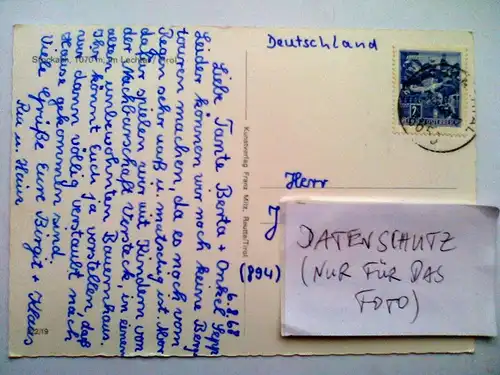 Stockach, 1070 m, im Lechtal / Tirol
6.8.68
Liebe Tante Berta + Onkel Sepp
Leider können wir noch keine Berg-
touren machen, da es noch vom
Regen sehr naß u. matschig ist. Aber
dafür spielen wir mit Kindern von
der Nachbarschaft Versteck, in einem
alten unbewohnten Bauernhaus.
Ihr könnt Euch ja vorstellen, daß
wir dann völlig verstaubt nach
Hause gekommen sind.
Viele Grüße Eure Birgit + Klaus
u. Heinz
22/19
Kunstverlag Franz Milz, Reutte/Tirol
(894)
Deutschland
ÖSTERREICH
Herr
J
DATENSCHUTZ
(NUR FÜR DAS
FOTO)